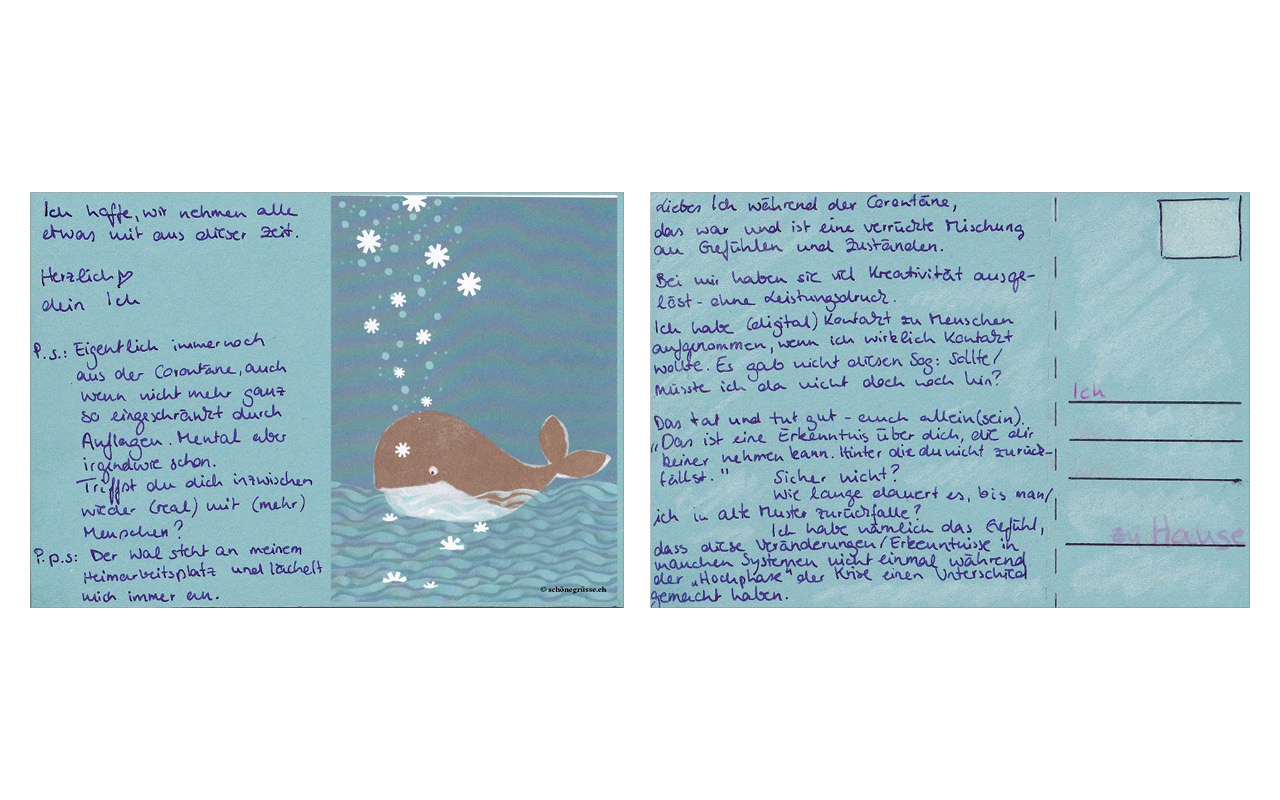 Ich hoffe, wir nehmen alle
etwas mit aus dieser Zeit.
Herzlich♡
dein Ich
P.s.: Eigentlich immer noch
aus der Corontäne, auch
wenn nicht mehr ganz
so eingeschränkt durch
Auflagen. Mental aber
irgendwie schon.
Triffst du dich inzwischen
wieder (real) mit (mehr)
Menschen?
P.p.s: Der Wal steht an meinem
Heimarbeitsplatz und lächelt
mich immer an.
© schönegrüsse.ch
Liebes Ich während der Corontäne,
das war und ist eine verrückte Mischung
an Gefühlen und Zuständen.
Bei mir haben sie viel Kreativität ausge-
löst - ohne Leistungsdruck.
Ich habe (digital) Kontakt zu Menschen
aufgenommen, wenn ich wirklich Kontakt
wollte. Es gab nicht diesen Sog: Sollte/
müsste ich da nicht doch noch hin?
Das tat und tut gut - auch allein(sein).
„Das ist eine Erkenntnis über dich, die dir
keiner nehmen kann. Hinter die du nicht zurück-
fällst." Sicher nicht?
Wie lange dauert es, bis man/
ich in alte Muster zurückfalle?
Ich habe nämlich das Gefühl,
dass diese Veränderungen/Erkenntnisse in
manchen Systemen nicht einmal während
der „Hochphase" der Krise einen Unterschied
gemacht haben.
Ich
zu Hause